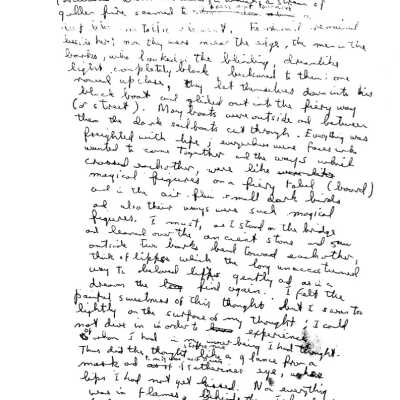 of
golden fire seemed to
remained
beside her; now they were near the edge, the men in the
barks, who looked in the blinding, dreamlike
light completely black beckoned to them: one
rowed up close, they let themselves down into his
black boat and glided out into the fiery way
(or street). Many boats were outside and between
them the dark sailboats cut through. Everything was
freighted with life; everywhere were faces who
wanted to come together and the ways which
crossed each other, were like
magical figures on a fiery tablet (board)
and in the air flew small dark birds
and also their ways were such magical
figures. I must, as I stood on the bridge
and leaned over the ancient stone and saw
outside two barks bend toward each other,
think of lips which the long unaccustomed
way to beloved lips gently and as in a
dream the find again. I felt the
painful sweetness of this thought but I swam too
lightly on the surface of my thought; I could
not dive in in order to experience
of whom I had been thinking. I had thought.
Thus did the thought like a glance from a
masked and as if Katherine's eye,
lips I had not yet kissed. Now everything
was in flames, behind the